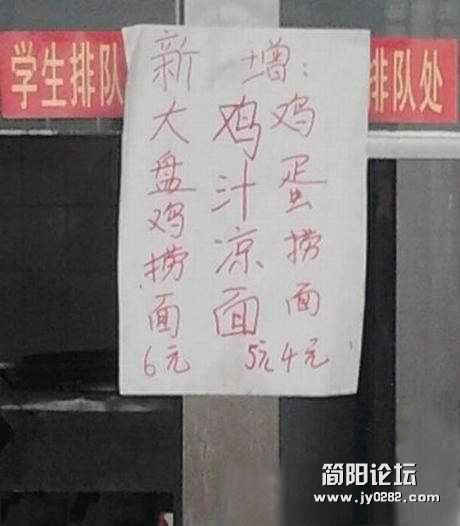 学生排队
排队处
新增:
大盘鸡捞面
6元
鸡汁凉面
5元
鸡蛋捞面
4元
简阳论坛
www.jy0282.com